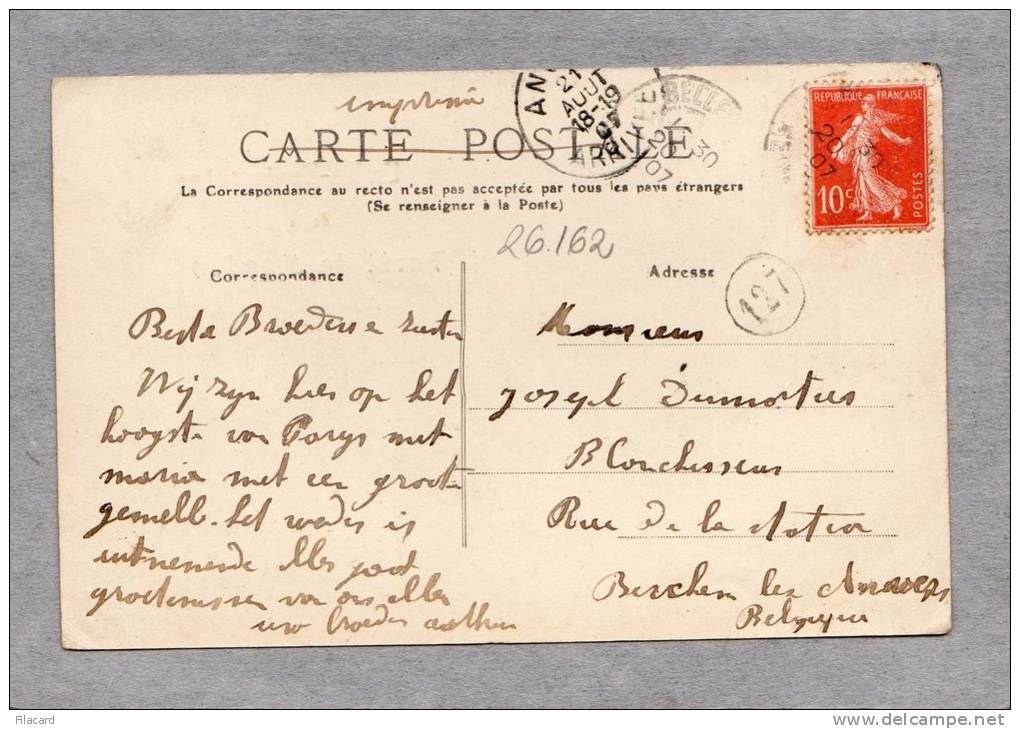 imprimé
CARTE POSTALE
La Correspondance au recto n'est pas acceptée par tous les pays étrangers
(Se renseigner à la Poste)
26.162
Correspondance
Adresse
127
ANV
21
AOUT
18-19
07
ARRIVEE
BELLE
1 30
20
07
REPUBLIQUE FRANÇAISE
10c
POSTES
30
20
07
Beste Broeders e zuster
Wij zijn hier op het
hoogste van Parys met
maria met een groote
gemelb. het weder is
uutnemende alles goet
groetenissen van ons allen
uw broeder
Monsieur
Joseph Dumortier
Blanchisseur
Rue de la Station
Berchem lez Anvers
Belgique
Filacard
http://www.delcampe.net